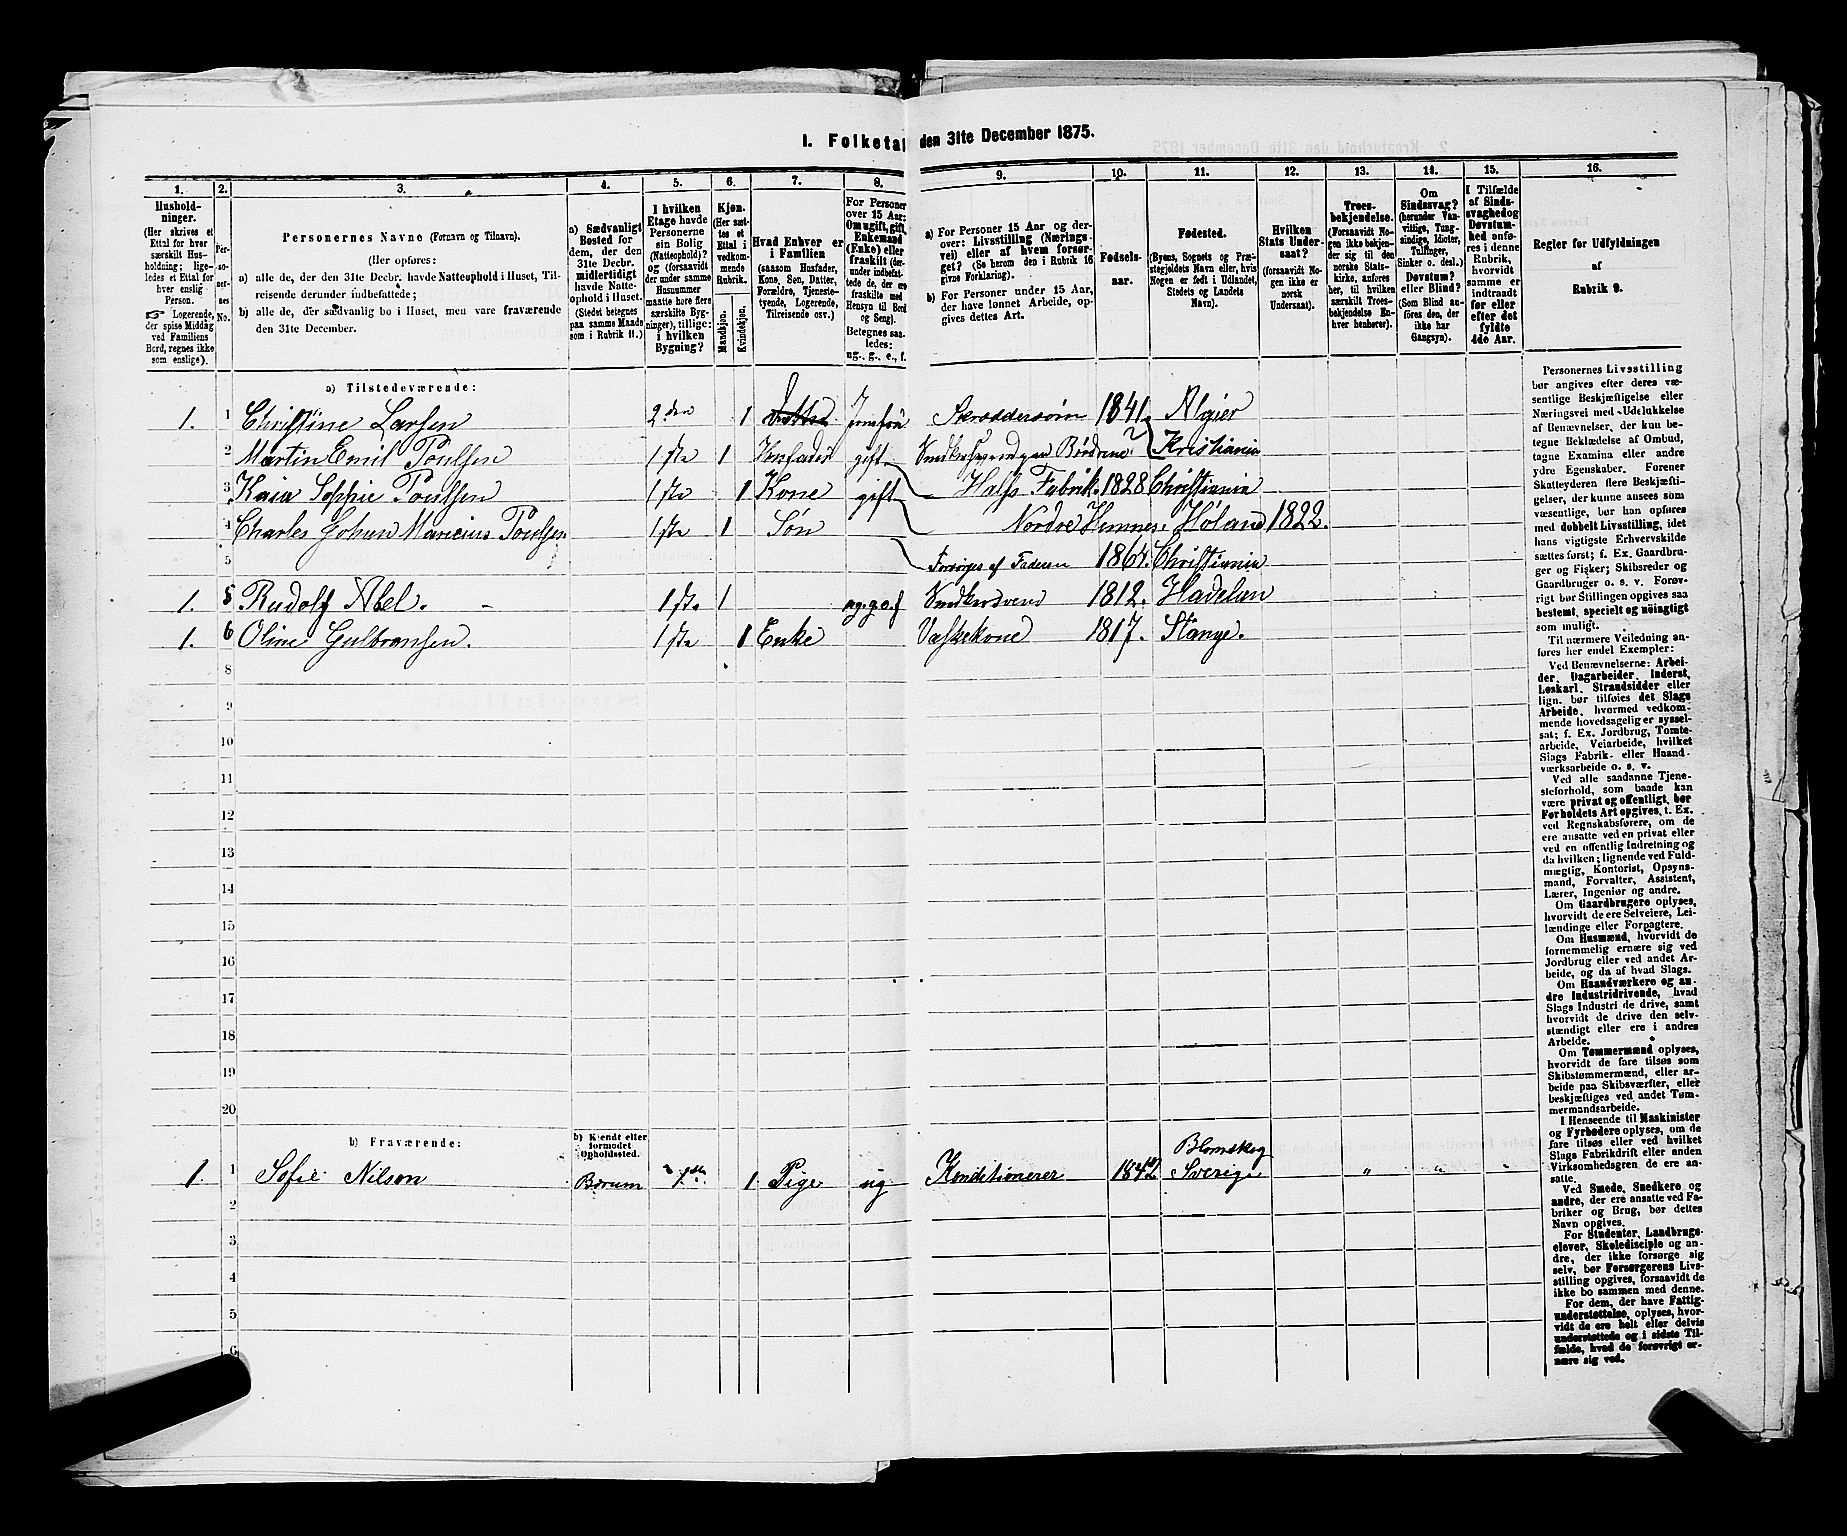 I. Folketal den 31te December 1875.
1. 2. 3. 4. 5. 6. 7. 8. 9. 10. 11. 12. 13. 14. 15. 16.
Husholdninger.
(Her skrives et
Ettal for hver
særskilt Husholdning;
ligeledes et Ettal for
hver enslig
Person.
Logerende,
der spise Middag
ved Familiens
Bord, regnes ikke
som enslige).
Personernes No.
Personernes Navne (Fornavn og Tilnavn).
(Her opføres:
a) alle de, der den 31te Decbr. havde Natteophold i Huset, Tilreisende derunder indbefattede;
b) alle de, der sædvanlig bo i Huset, men vare fraværende
den 31te December.
a) Sædvanligt
Bosted for
dem, der den
31te Decbr.
midlertidigt
havde Natteophold i Huset.
(Stedet betegnes
paa samme Maade
som i Rubrik 11.)
I hvilken
Etage havde
Personerne
sin Bolig
(Natteophold)?
og (forsaavidt
der under samme
Husnummer
maatte høre flere
særskilte Bygninger), tillige:
i hvilken
Bygning?
Kjøn.
(Her sættes et
Ettal i
vedkommende
Rubrik.
Mandkjøn.
Kvindekjøn.
Hvad Enhver er
i Familien
(saasom Husfader,
Kone, Søn, Datter,
Forældre, Tjenestetyende, Logerende,
Tilreisende osv.)
For Personer
over 15 Aar:
Om ugift, gift,
Enkemand
(Enke) eller
fraskilt (derunder indbefattede de, der ere
fraskilte med
Hensyn til Bord
og Seng).
Betegnes saaledes:
ug., g., e., f.
a) For Personer 15 Aar og derover: Livsstilling (Næringsvei) eller af hvem forsørget? (Se herom den i Rubrik 16
givne Forklaring).
b) For Personer under 15 Aar,
der have lønnet Arbeide, opgives dettes Art.
Fødselsaar.
Fødested.
(Byens, Sognets og Præstegjeldets Navn eller, hvis
Nogen er født i Udlandet,
Stedets og Landets
Navn).
Hvilken
Stats Undersaat?
(forsaavidt Nogen ikke er
norsk
Undersaat).
Troesbekjendelse.
(Forsaavidt Nogen ikke bekjender sig til den
norske Statskirke, anføres
her, til hvilken
særskilt Troesbekjendelse Enhver henhører).
Om
Sindssvag?
(herunder Vanvittige, Tungsindige, Idioter,
Tullinger,
Sinker o. desl.)
Døvstum?
eller Blind?
(Som Blind anføres den, der
ikke har
Gangsyn).
I Tilfælde
af Sindssvaghed og
Døvstumhed anføres i denne
Rubrik,
hvorvidt
samme er
indtraadt
før eller
efter det
fyldte
4de Aar.
Regler for Udfyldningen
af
Rubrik 9.
a) Tilstedeværende:
1. 1 Christine Larsen 2den 1 Jomfru 1841. Algier
2 Martin Emil Poulsen 1ste 1 Husfader gift Kristiania
3 Kaia Sophie Poulsen 1ste 1 Kone gift Fabrik. 1828 Christiania
4 Charles Johan Poulsen 1ste 1 Søn Nordre Høland 1822.
5 Forsørges af Faderen 1864. Christiania
1. 5 Rudolf Abel. 1ste 1 Snedkersvend 1812. Hadeland
1. 6 Oline Gulbransen. 1ste 1 Enke Vaskekone 1817. Stange.
8
9
10
11
12
13
14
15
16
17
18
19
20
b) Fraværende:
b) Kjendt eller
formodet
Opholdssted.
1. 1 Sofie Nilson Bærum 1ste 1 Pige ug Konditionerer 1842 Blomskog Sverige " " "
2
3
4
5
6
Personernes Livsstilling
bør angives efter deres væsentlige Beskjæftigelse eller
Næringsvei med Udelukkelse
af Benævnelser, der kun betegne Beklædelse af Ombud,
tagne Examina eller andre
ydre Egenskaber. Forener
Skatteyderen flere Beskjæftigelser, der kunne ansees som
væsentlige, bør han opføres
med dobbelt Livsstilling, idet
hans vigtigste Erhvervskilde
sættes først; f. Ex. Gaardbruger og Fisker; Skibsreder og
Gaardbruger o. s. v. Forøvrigt bør Stillingen opgives saa
bestemt, specielt og nøiagtigt
som muligt.
Til nærmere Veiledning anføres her endel Exempler:
Ved Benævnelserne: Arbeider, Dagarbeider, Inderst,
Løskarl, Strandsidder eller
lign. bør tilføies det Slags
Arbeide, hvormed vedkommende hovedsagelig er sysselsat; f. Ex. Jordbrug, Tomtearbeide, Veiarbeide, hvilket
Slags Fabrik- eller Haandværksarbeide o. s. v.
Ved alle saadanne Tjenesteforhold, som baade kan
være privat og offentligt, bør
Forholdets Art opgives, t. Ex.
ved Regnskabsførere, om de
ere ansatte ved en privat eller
ved en offentlig Indretning og
da hvilken; lignende ved Fuldmægtig, Kontorist, Opsynsmand, Forvalter, Assistent,
Lærer, Ingeniør og andre.
Om Gaardbrugere oplyses,
hvorvidt de ere Selveiere, Leilændinge eller Forpagtere.
Om Husmænd, hvorvidt de
fornemmelig ernære sig ved
Jordbrug eller ved andet Arbeide, og da af hvad Slags.
Om Haandværkere og andre Industridrivende, hvad
Slags Industri de drive, samt
hvorvidt de drive den selvstændigt eller ere i andres
Arbeide.
Om Tømmermænd oplyses,
hvorvidt de fare tilsøs som
Skibstømmermænd, eller arbeide paa Skibsværfter, eller
beskjæftiges ved andet Tømmermandsarbeide.
I Henseende til Maskinister
og Fyrbødere oplyses, om de
fare tilsøs eller ved hvilket
Slags Fabrikdrift eller anden
Virksomhedsgren de ere ansatte.
Ved Smede, Snedkere og
andre, der ere ansatte ved Fabriker og Brug, bør dettes
Navn opgives.
For Studenter, Landbrugselever, Skoledisciple og andre, der ikke forsørge sig
selv, bør Forsørgerens Livsstilling opgives, forsaavidt de
ikke bo sammen med denne.
For dem, der have Fattigunderstøttelse, oplyses, hvorvidt de ere helt eller delvis
understøttede og i sidste Tilfælde, hvad de forøvrigt ernære sig ved.